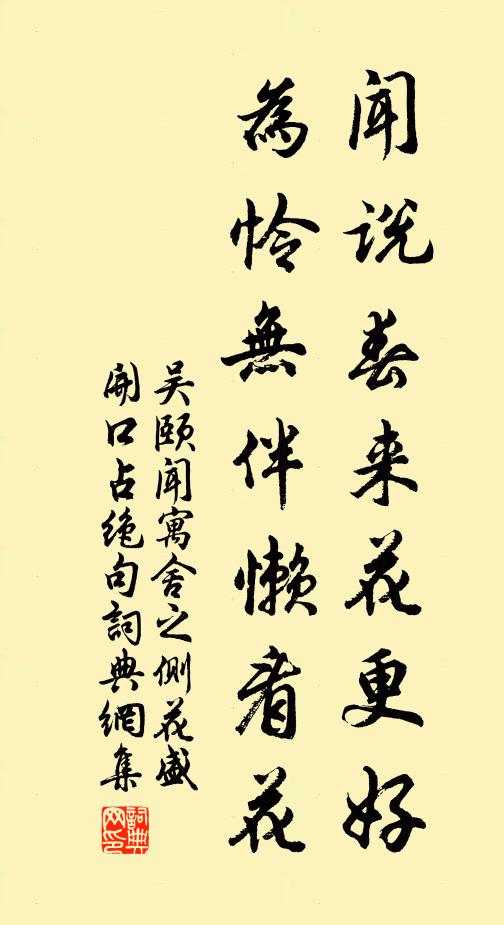 闻说春来花更好
為怜無伴懒看花
吴颐闻寓舍之側花盛
開口占绝句詞典網集
詞典网印